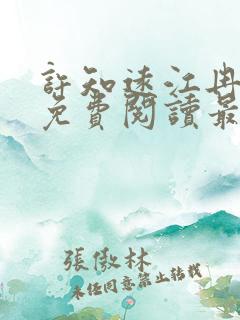 許知遠江冉
免費閱讀最
張傲林
未經同意禁止轉載